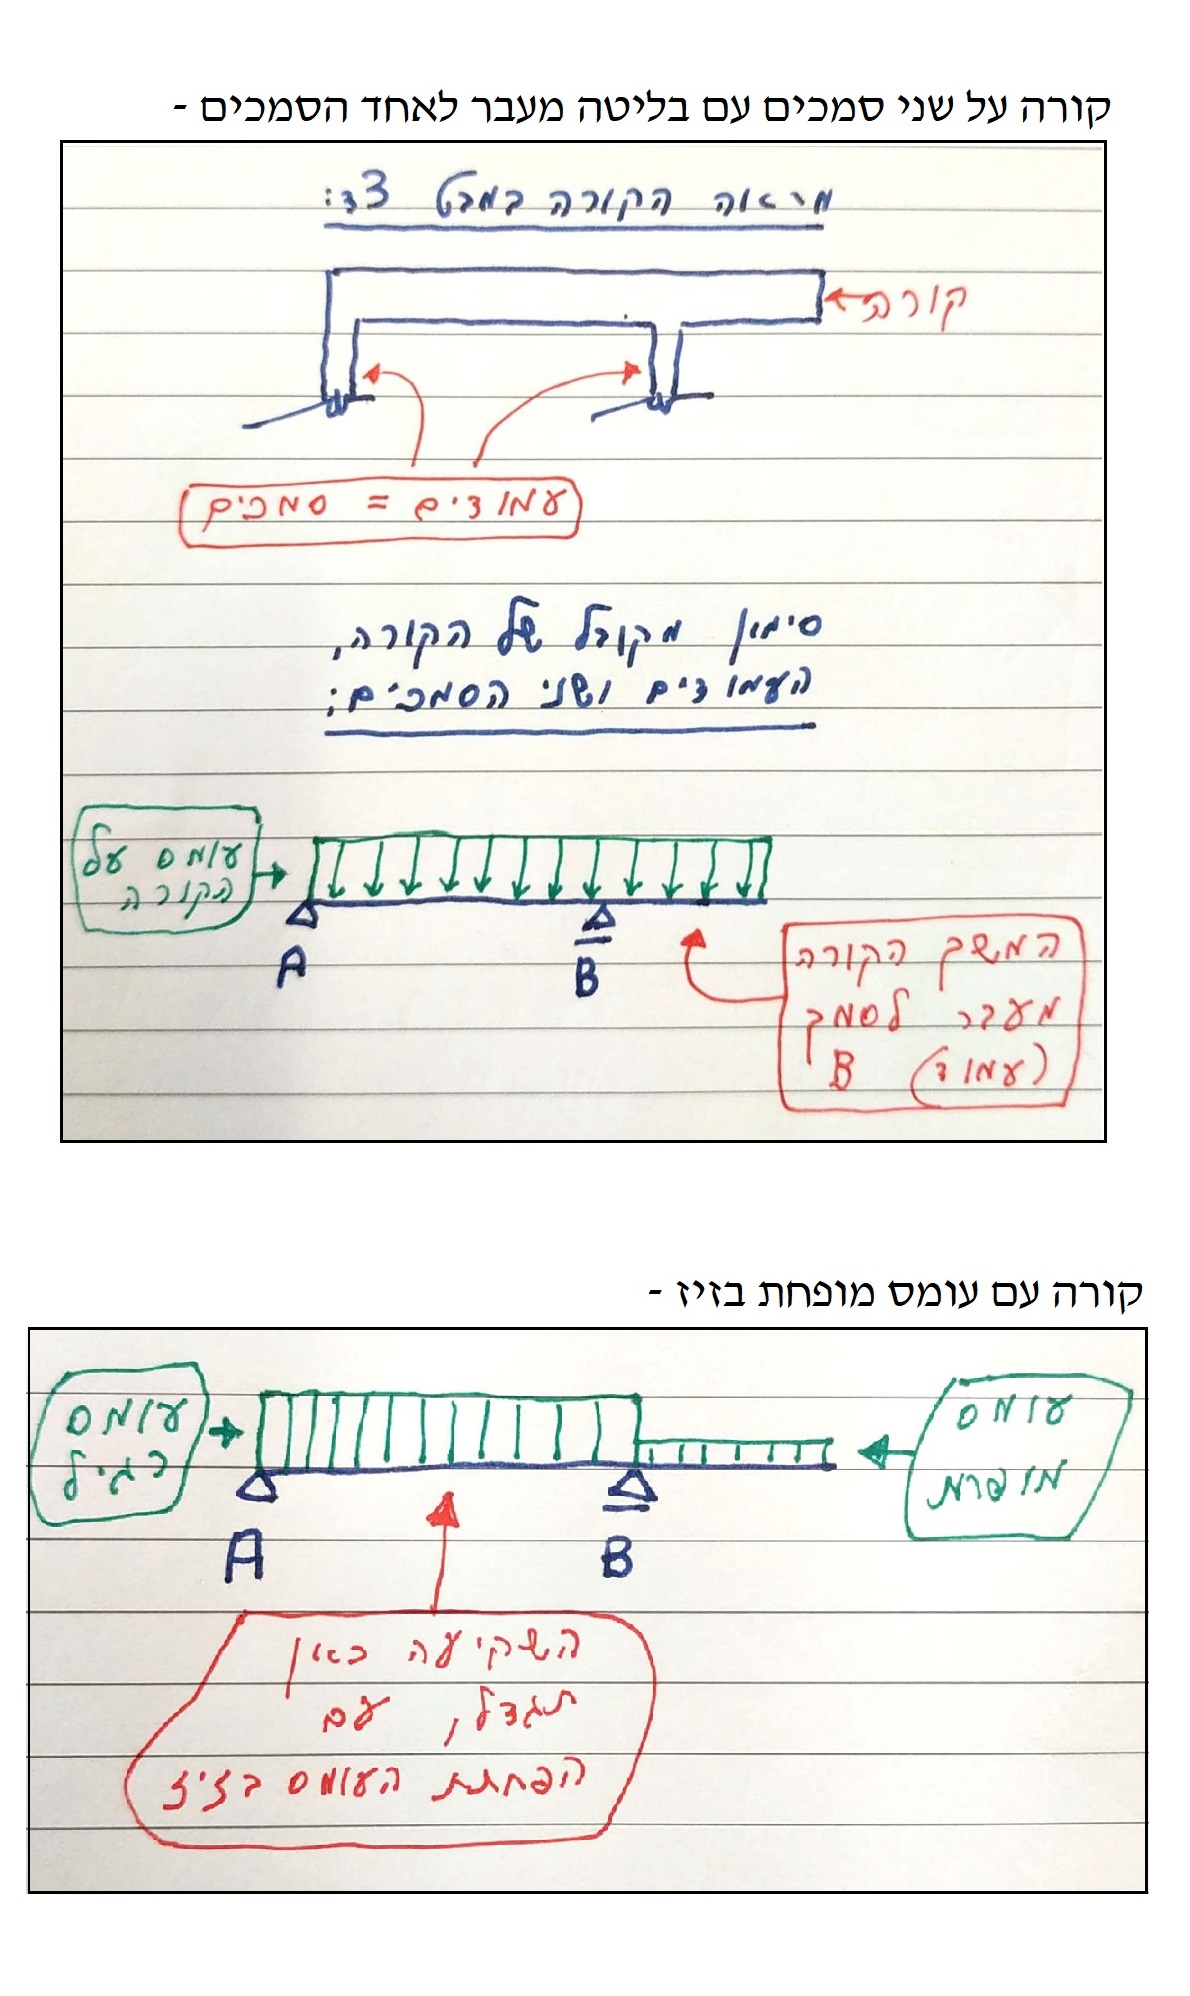 קורה על שני סמכים עם בליטה מעבר לאחד הסמכים -
מראה הקורה במבט 3ד:
קורה
עמודים = סמכים
סימון מקובל של הקורה,
העמודים ושני הסמכים:
עומס על
הקורה
A
B
המשך הקורה
מעבר לסמך
(עמוד) B
קורה עם עומס מופחת בזיז -
עומס
רגיל
עומס
מופחת
A
B
השקיעה כאן
תגדל, עם
הפחתת העומס בזיז